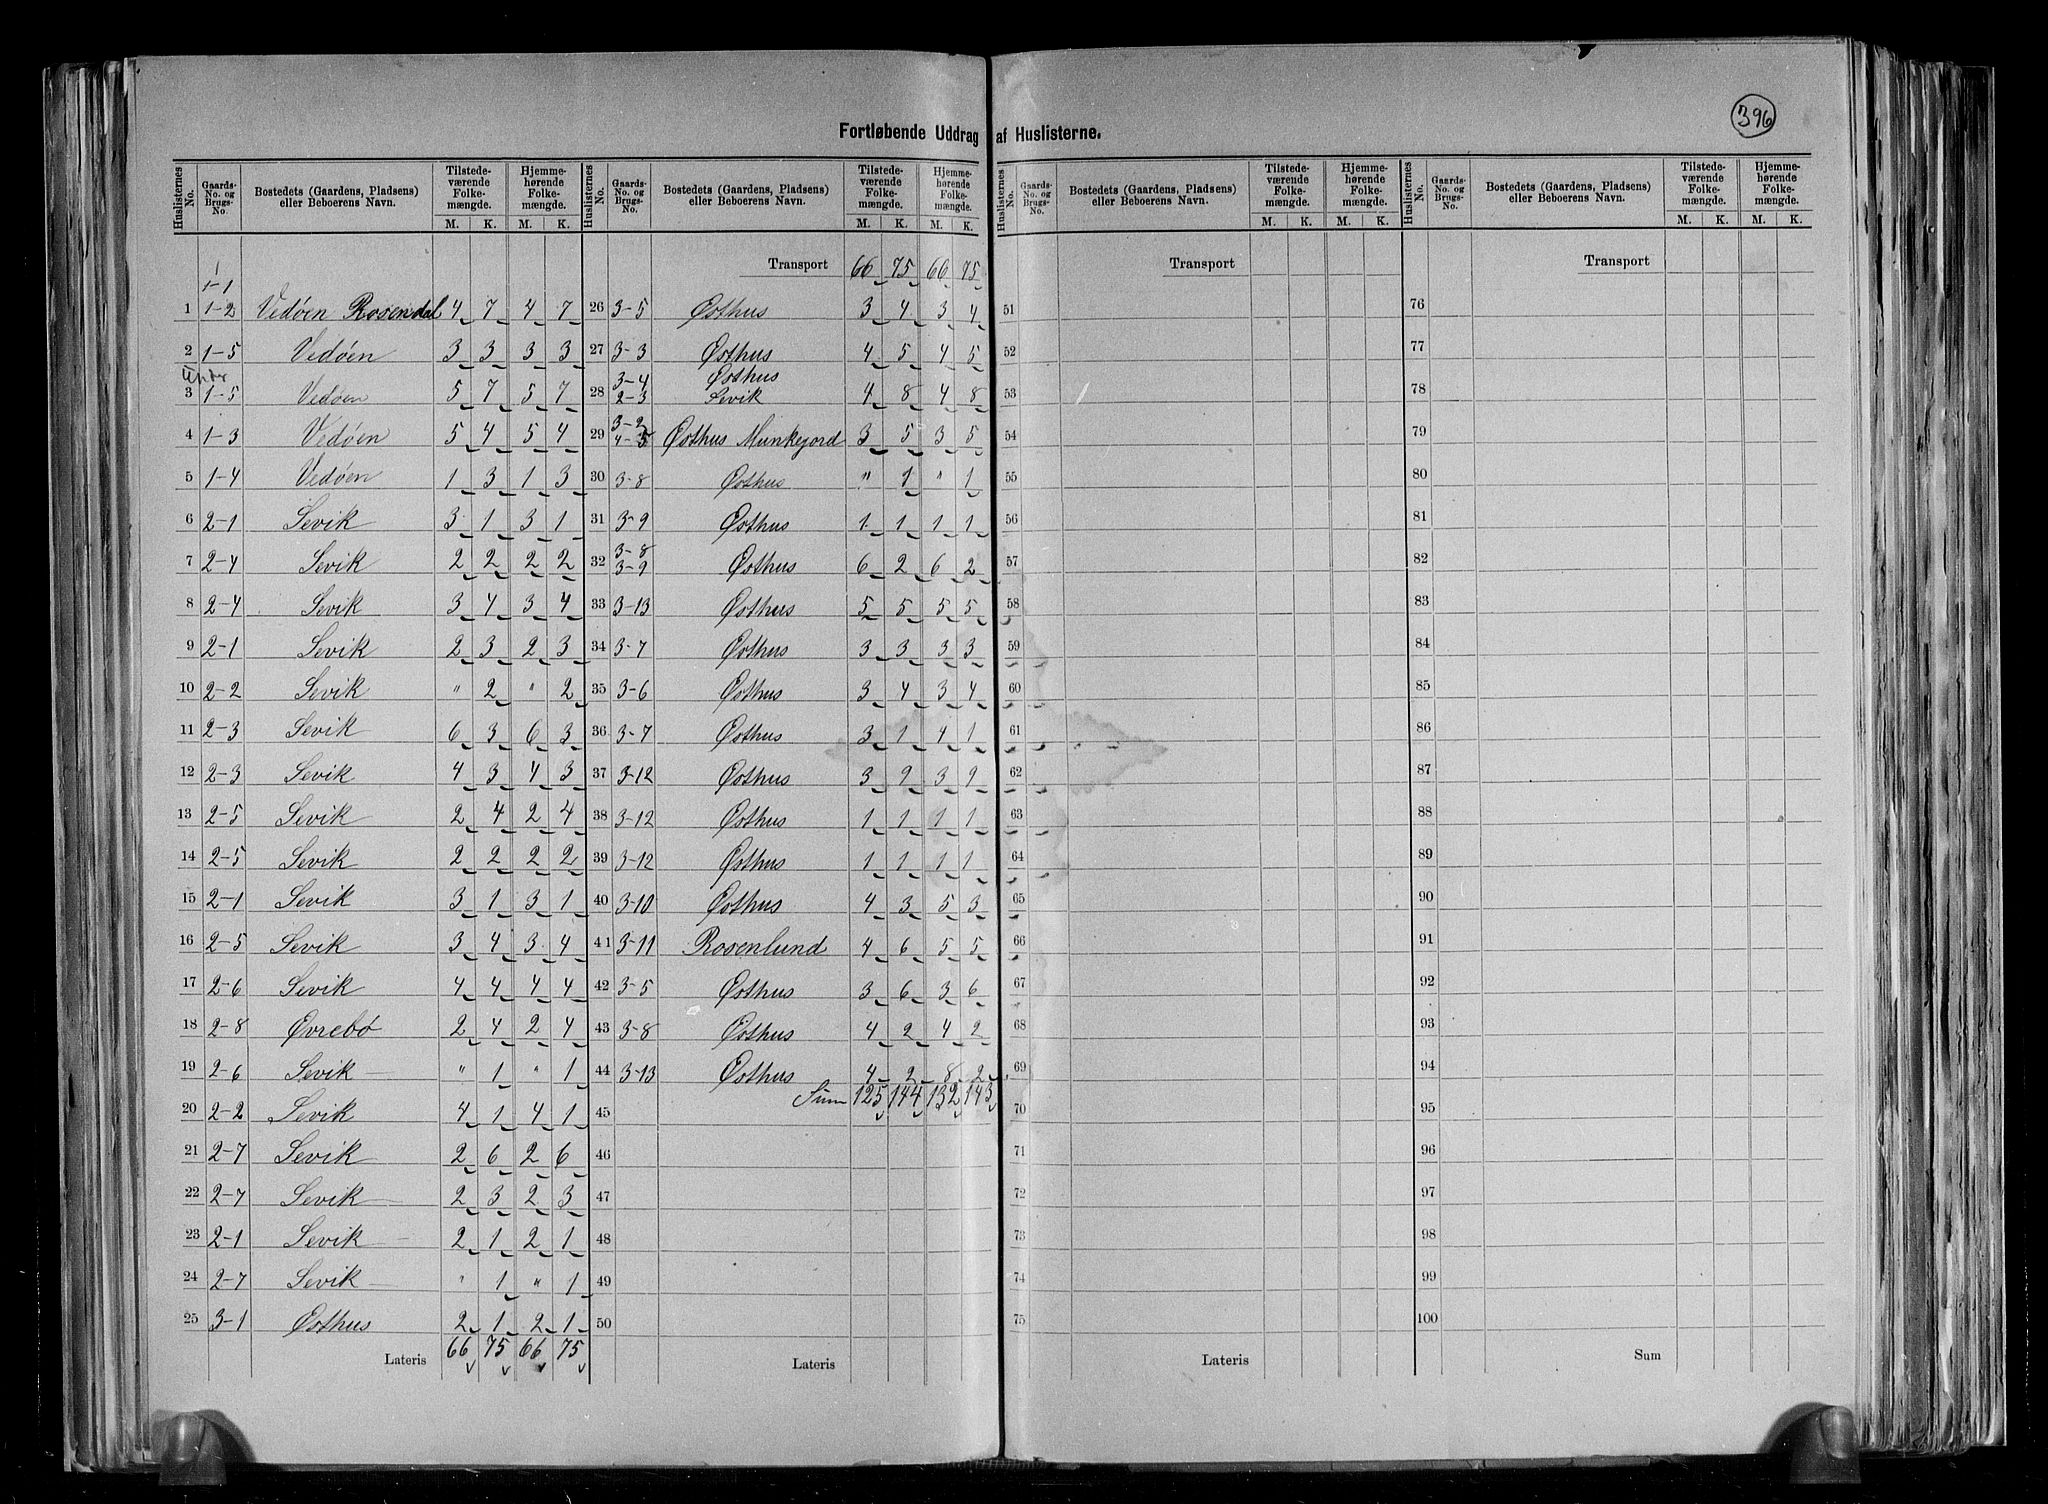 396
Fortløbende Uddrag af Huslisterne.
Huslisternes No. | Gaards-No. og Brugs-No. | Bostedets (Gaardens, Pladsens) eller Beboerens Navn. | Tilstedeværende Folkemængde. M. K. | Hjemmehørende Folkemængde. M. K.
Huslisternes No. | Gaards-No. og Brugs-No. | Bostedets (Gaardens, Pladsens) eller Beboerens Navn. | Tilstedeværende Folkemængde. M. K. | Hjemmehørende Folkemængde. M. K.
1 1-1 1-2 Vedøen Rosendal 4 7 4 7
2 1-5 Vedøen 3 3 3 3
3 Under 1-5 Vedøen 5 7 5 7
4 1-3 Vedøen 5 4 5 4
5 1-4 Vedøen 1 3 1 3
6 2-1 Sevik 3 1 3 1
7 2-4 Sevik 2 2 2 2
8 2-4 Sevik 3 4 3 4
9 2-1 Sevik 2 3 2 3
10 2-2 Sevik " 2 " 2
11 2-3 Sevik 6 3 6 3
12 2-3 Sevik 4 3 4 3
13 2-5 Sevik 2 4 2 4
14 2-5 Sevik 2 2 2 2
15 2-1 Sevik 3 1 3 1
16 2-5 Sevik 3 4 3 4
17 2-6 Sevik 4 4 4 4
18 2-8 Øvrebø 2 4 2 4
19 2-6 Sevik " 1 " 1
20 2-2 Sevik 4 1 4 1
21 2-7 Sevik 2 6 2 6
22 2-7 Sevik 2 3 2 3
23 2-1 Sevik 2 1 2 1
24 2-7 Sevik " 1 " 1
25 3-1 Østhus 2 1 2 1
Lateris 66 75 66 75
Transport 66 75 66 75
26 3-5 Østhus 3 4 3 4
27 3-3 Østhus 4 5 4 5
28 3-4 Østhus 2-3 Sevik 4 8 4 8
29 3-2 4-5 Østhus Munkejord 3 5 3 5
30 3-8 Østhus " 1 " 1
31 3-9 Østhus 1 1 1 1
32 3-8 3-9 Østhus 6 2 6 2
33 3-13 Østhus 5 5 5 5
34 3-7 Østhus 3 3 3 3
35 3-6 Østhus 3 4 3 4
36 3-7 Østhus 3 1 4 1
37 3-12 Østhus 3 9 3 9
38 3-12 Østhus 1 1 1 1
39 3-12 Østhus 1 1 1 1
40 3-10 Østhus 4 3 5 3
41 3-11 Rosenlund 4 6 5 5
42 3-5 Østhus 3 6 3 6
43 3-8 Østhus 4 2 4 2
44 3-13 Østhus 4 2 8 2
Sum 125 144 132 143
45
46
47
48
49
50
Lateris
Huslisternes No. | Gaards-No. og Brugs-No. | Bostedets (Gaardens, Pladsens) eller Beboerens Navn. | Tilstedeværende Folkemængde. M. K. | Hjemmehørende Folkemængde. M. K.
Transport
51
52
53
54
55
56
57
58
59
60
61
62
63
64
65
66
67
68
69
70
71
72
73
74
75
Lateris
Huslisternes No. | Gaards-No. og Brugs-No. | Bostedets (Gaardens, Pladsens) eller Beboerens Navn. | Tilstedeværende Folkemængde. M. K. | Hjemmehørende Folkemængde. M. K.
Transport
76
77
78
79
80
81
82
83
84
85
86
87
88
89
90
91
92
93
94
95
96
97
98
99
100
Sum